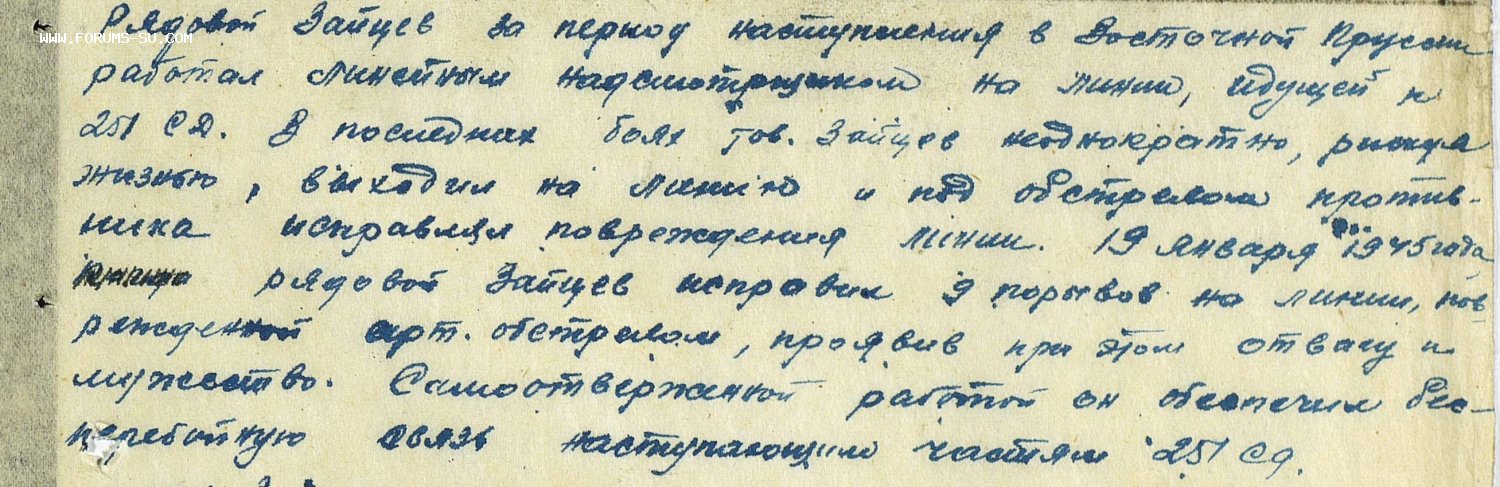 Рядовой Зайцев за период наступления в Восточной Пруссии
WWW.FORUMS-SU.COM
работал линейным надсмотрщиком на линии, идущей к
251 СД. В последних боях тов. Зайцев неоднократно, рискуя
жизнью, выходил на линию и под обстрелом против-
ника исправлял повреждения линии. 19 января 1945 года,
рядовой Зайцев исправил 9 порывов на линии, пов-
режденной арт. обстрелом, проявив при этом отвагу и
мужество. Самоотверженной работой он обеспечил бес-
перебойную связь наступающим частям 251 сд.